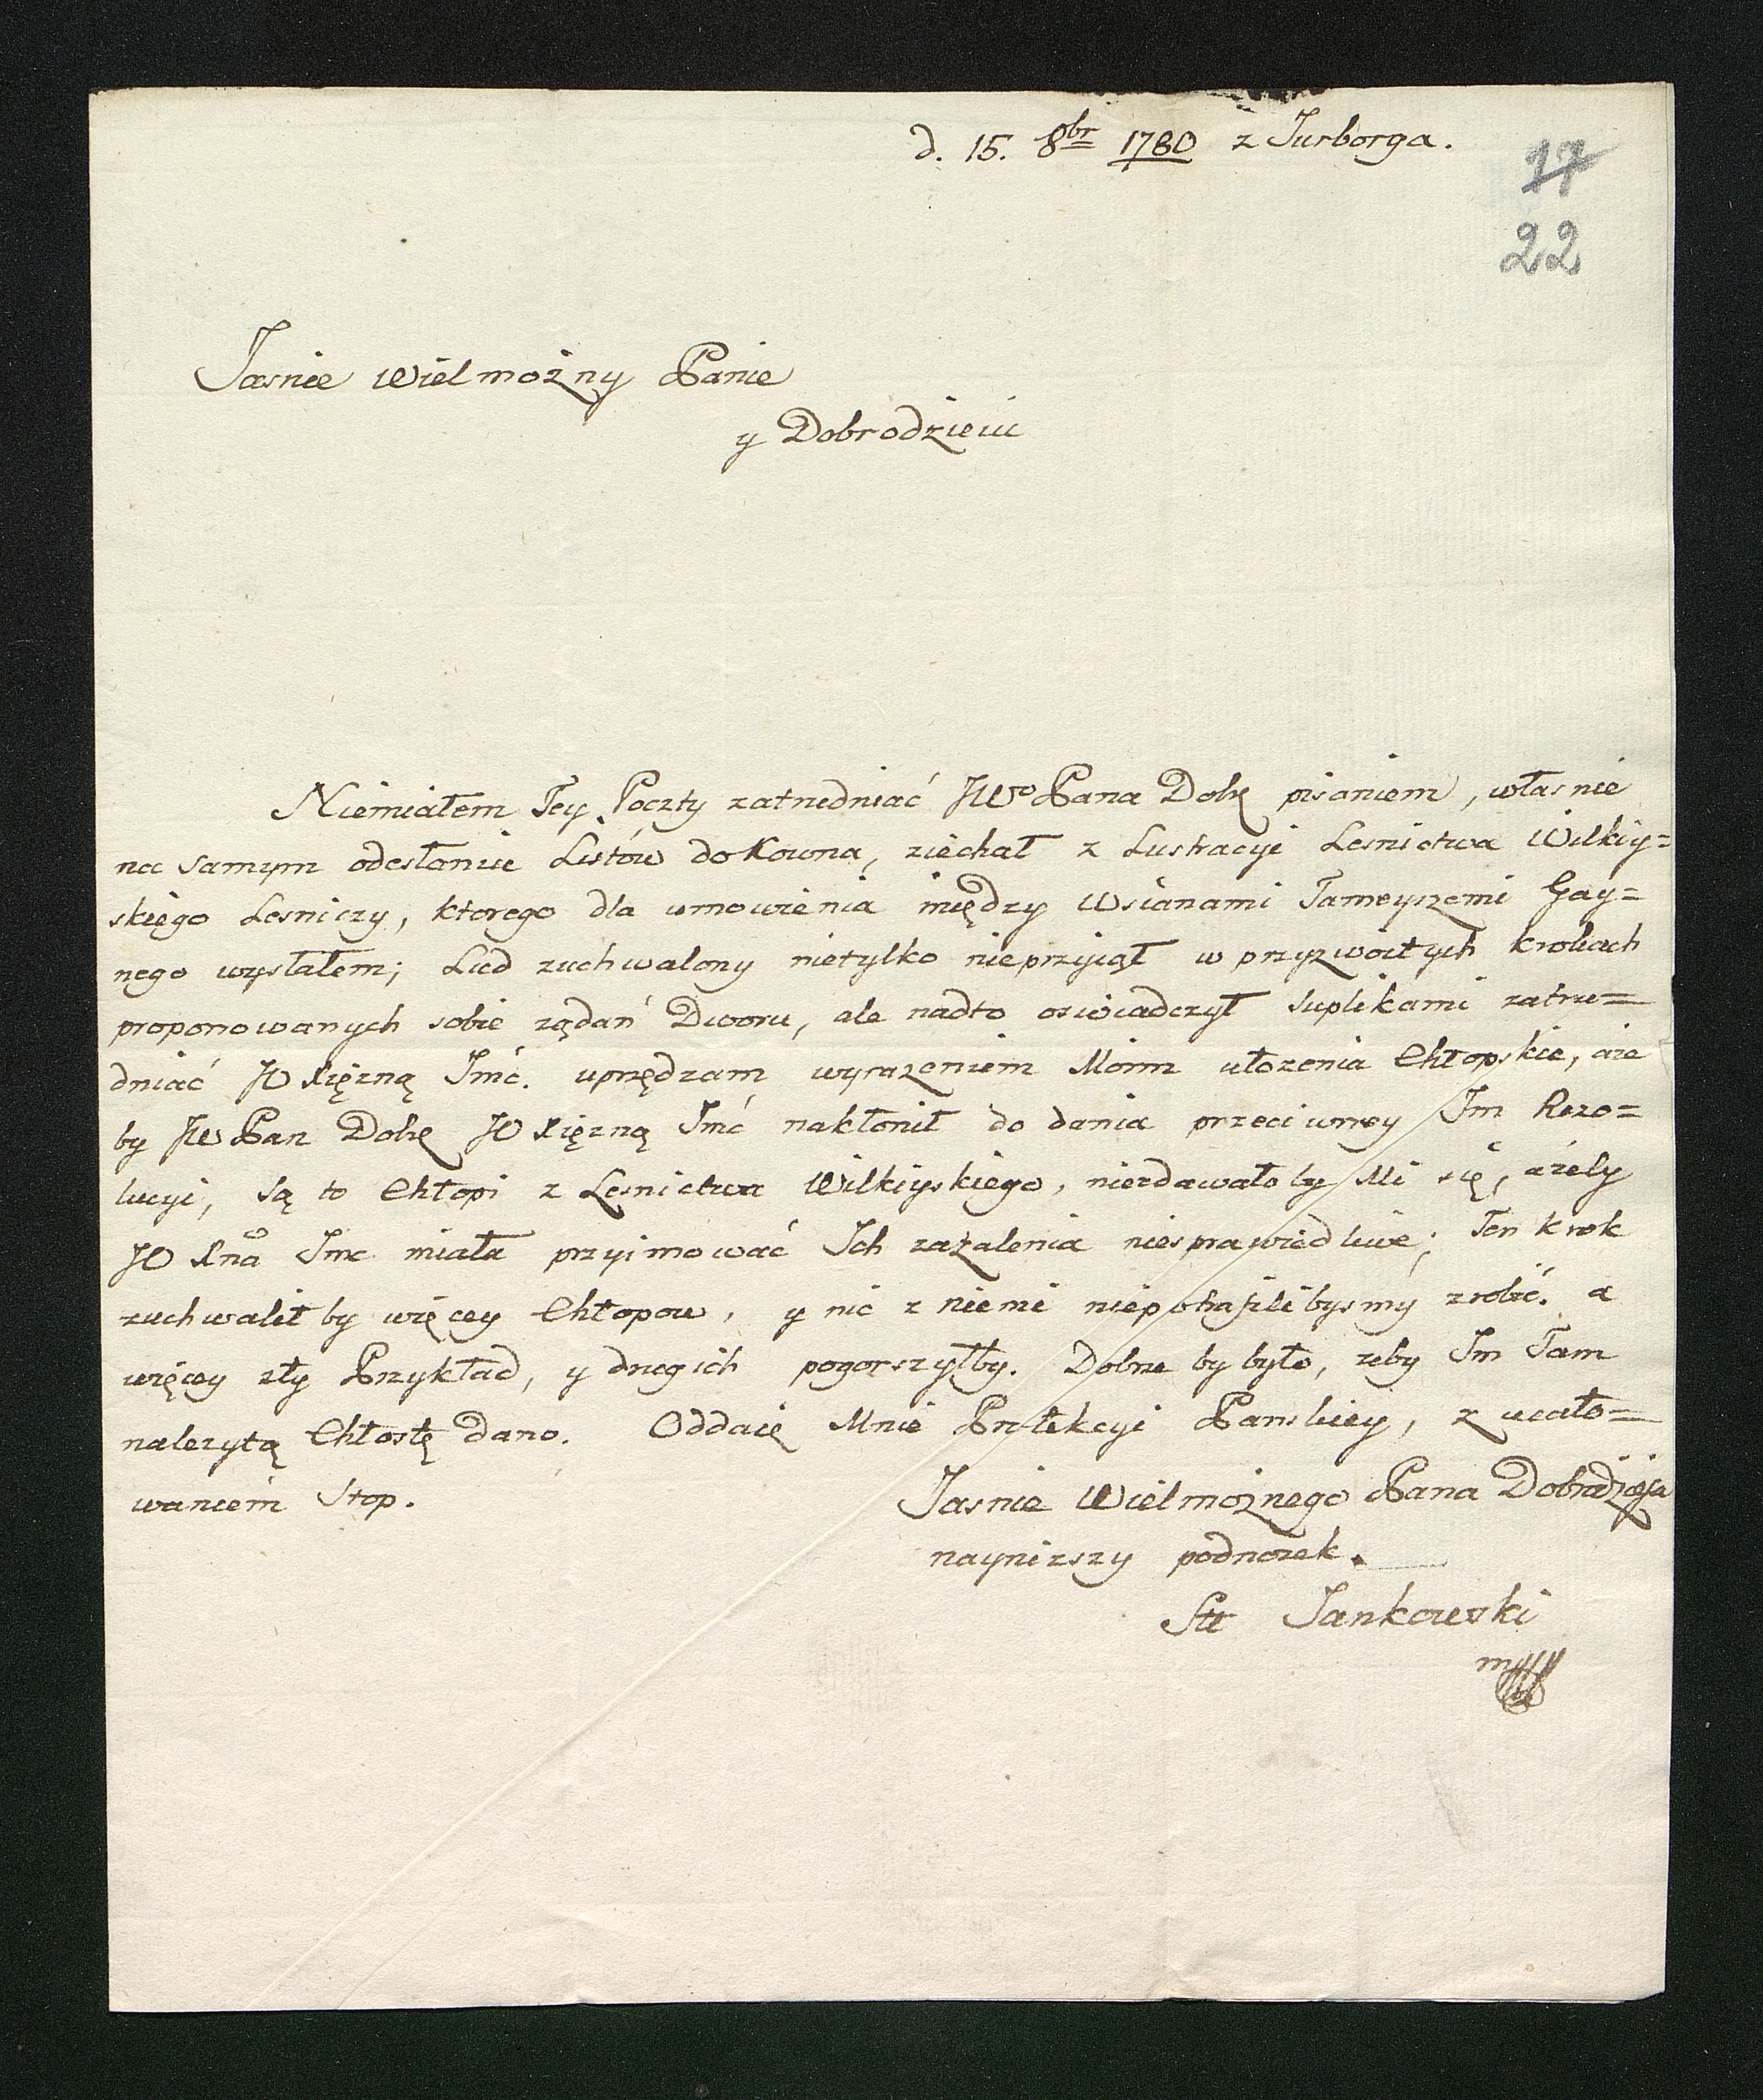 d. 15. 8br 1780 z Jurborga.
17
22
Jasnie Wielmożny Panie
y Dobrodzieiu
Niemiałem Tey Poczty zatrudniać JWo Pana Dobę pisaniem, własnie
na samym odesłaniu Listów do Kowna, ziechał z Lustracyi Lesnictwa Wilkiy=
skiego Lesniczy, ktorego dla umowienia między Wsianami Tameyszemi Gay=
nego wysłałem; Lud zuchwalony nietylko nieprzyiął w przyzwoitych krokach
proponowanych sobie ządań Dworu, ale nadto oswiadczył suplikami zatru=
dniać JO Xięzną Imć. uprzędzam wyrazeniem Moim ułozenia Chłopskie, aże
by JW Pan Dobę JO Xięzną Imć nakłonił do dania przeciwney Im Rezo=
lucyi, Są to Chłopi z Lesnictwa Wilkiyskiego, niezdawałoby Mi się, ażeby
JO Xna Imc miała przyimować Ich zażalenia niesprawiedliwe; Ten krok
zuchwalił by więcey Chłopow, y nic z niemi niepotrafilibysmy zrobić. a
więcey zły Przykład, y drugich pogorszyłby. Dobrze by było, zeby Im Tam
nalezytą Chłostę dano. Oddaię Mnie Protekcyi Panskiey, z ucało=
waniem Stop.
Jasnie Wielmożnego Pana Dobrodzieja
naynizszy podnozek.
Jankowski